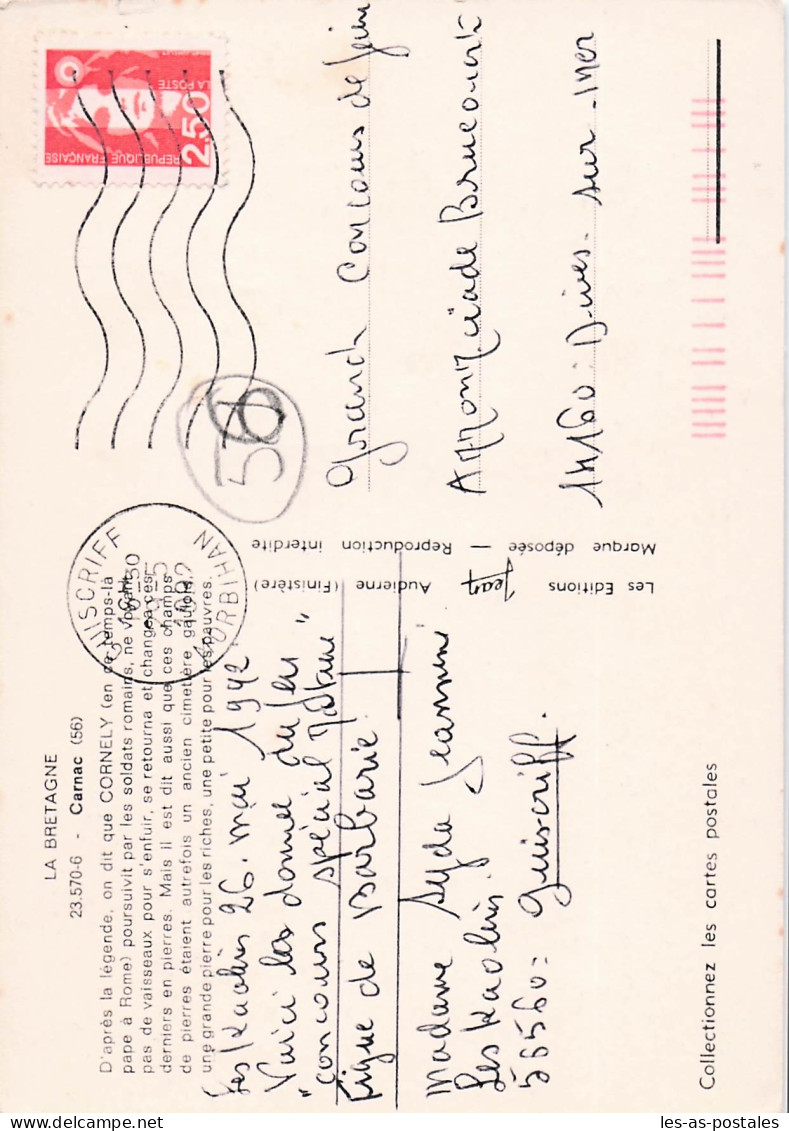 LA BRETAGNE
23.570-6 - Carnac (56)
D'après la légende, on dit que CORNELY (en ce temps-là
pape à Rome) poursuivit par les soldats romains, ne voyant
pas de vaisseaux pour s'enfuir, se retourna et changea ces
derniers en pierres. Mais il est dit aussi que ces champs
de pierres étaient autrefois un ancien cimetière gaulois,
une grande pierre pour les riches, une petite pour les pauvres.
Les Kaolins 26. mai 1992
Voici les données du jeu
"concours spécial
Figue de Barbarie
Madame Jeannine
Les Kaolins
56560 = Guiscriff.
GUISCRIFF
18H30
-5
1992
MORBIHAN
REPUBLIQUE FRANÇAISE
LA POSTE
2,50
56
Les Editions Jean Audierne (Finistère)
Marque déposée — Reproduction interdite
Grand Concours de juin
Brucourt
14160 = Dives-sur-Mer
Collectionnez les cartes postales
les-as-postales